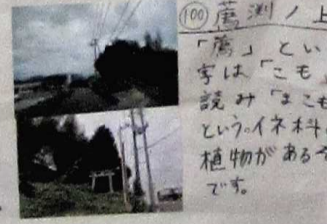 (100) 薦渕ノ上
「薦」とい
字は「こも」
読み「まこも
という。イネ科
植物がある
です。